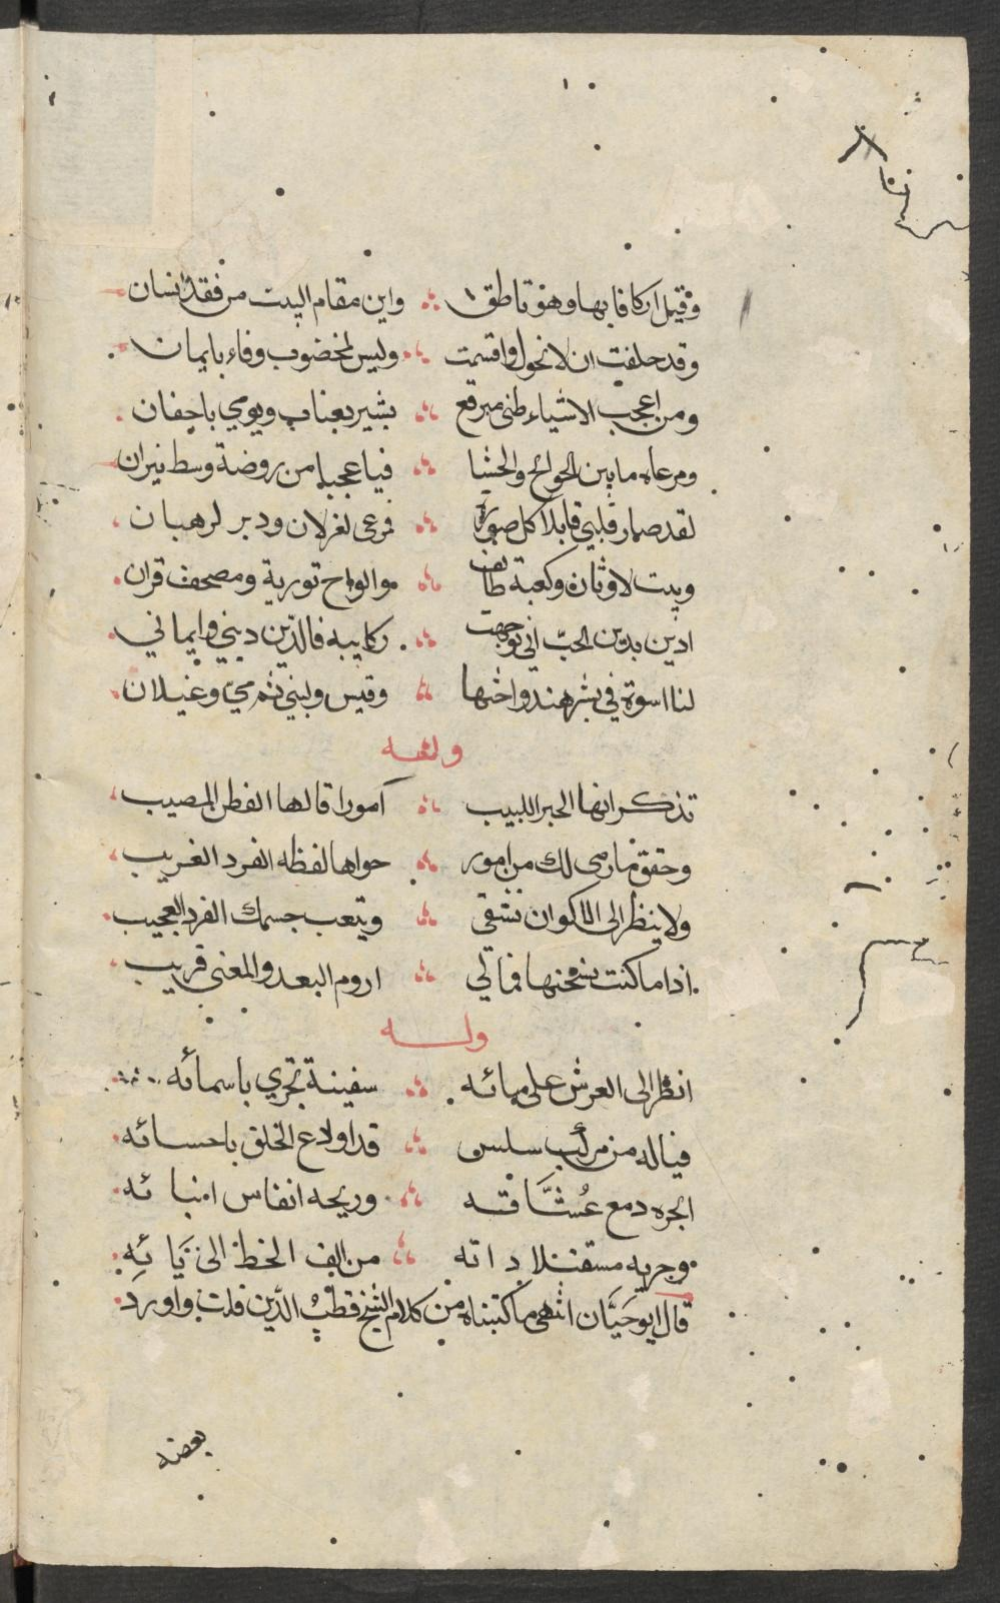 وقيل اركافا بها وهو ناطق واين مقام البيت من فقد انسان
وقد حلفت ان لا نحول واقسمت وليس لمخضوب وفاء بايمان
ومن اعجب الاشياء ظني مبرقع بشير بعناب ويومي باجفان
ومرعاه ما بين الجوانح والحشا فيا عجبا من روضة وسط نيران
لقد صار قلبي قابلا كل صورة فرعى لغزلان ودير لرهبان
وبيت لاوثان وكعبة طائف والواح تورية ومصحف قران
ادين بدين الحب اني توجهت ركايبه فالدين ديني وايماني
لنا اسوة في بشر هند واختها وقيس ولبنى ثم مي وغيلان
وله
تذكر انها الحبر اللبيب امورا قالها الفطن المصيب
وحقق ما رمى لك من امور حواها لفظه الفرد الغريب
ولا ينظر الى الاكوان تشقى ويتعب جسمك الفرد العجيب
اذا ما كنت فما لي اروم البعد والمعنى قريب
وله
انظر الى العرش على مائه سفينة تجري باسمائه
فيا له من مركب سلس قد اودع الخلق باحسائه
ابحره دمع عُشَّاقته وريحه انفاس انبائه
وجريه من الف الخط الى يائه
قال ابو حيان انتهى ما كتبناه من كلام الشيخ قطب الدين قلت واورد
بعضه